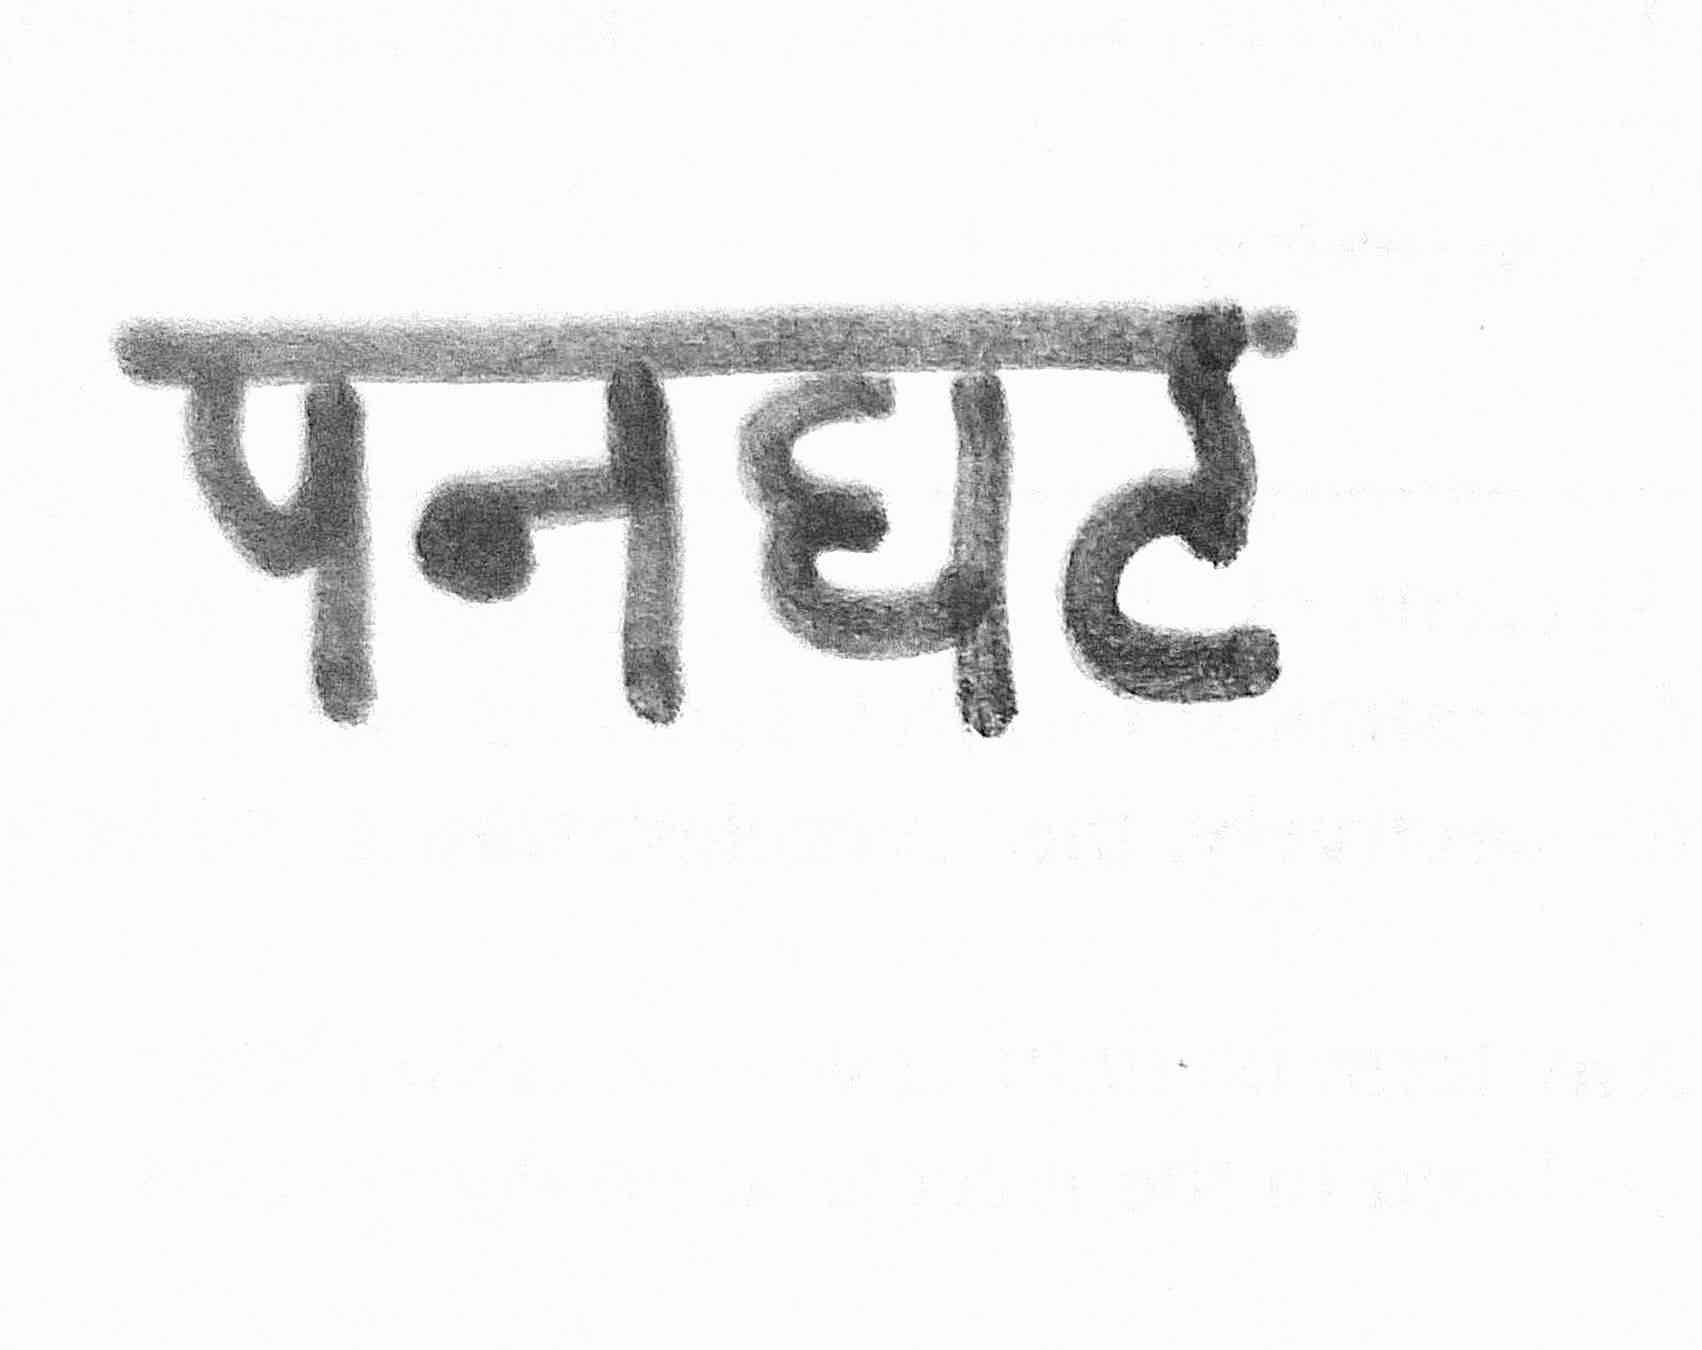 पनघट